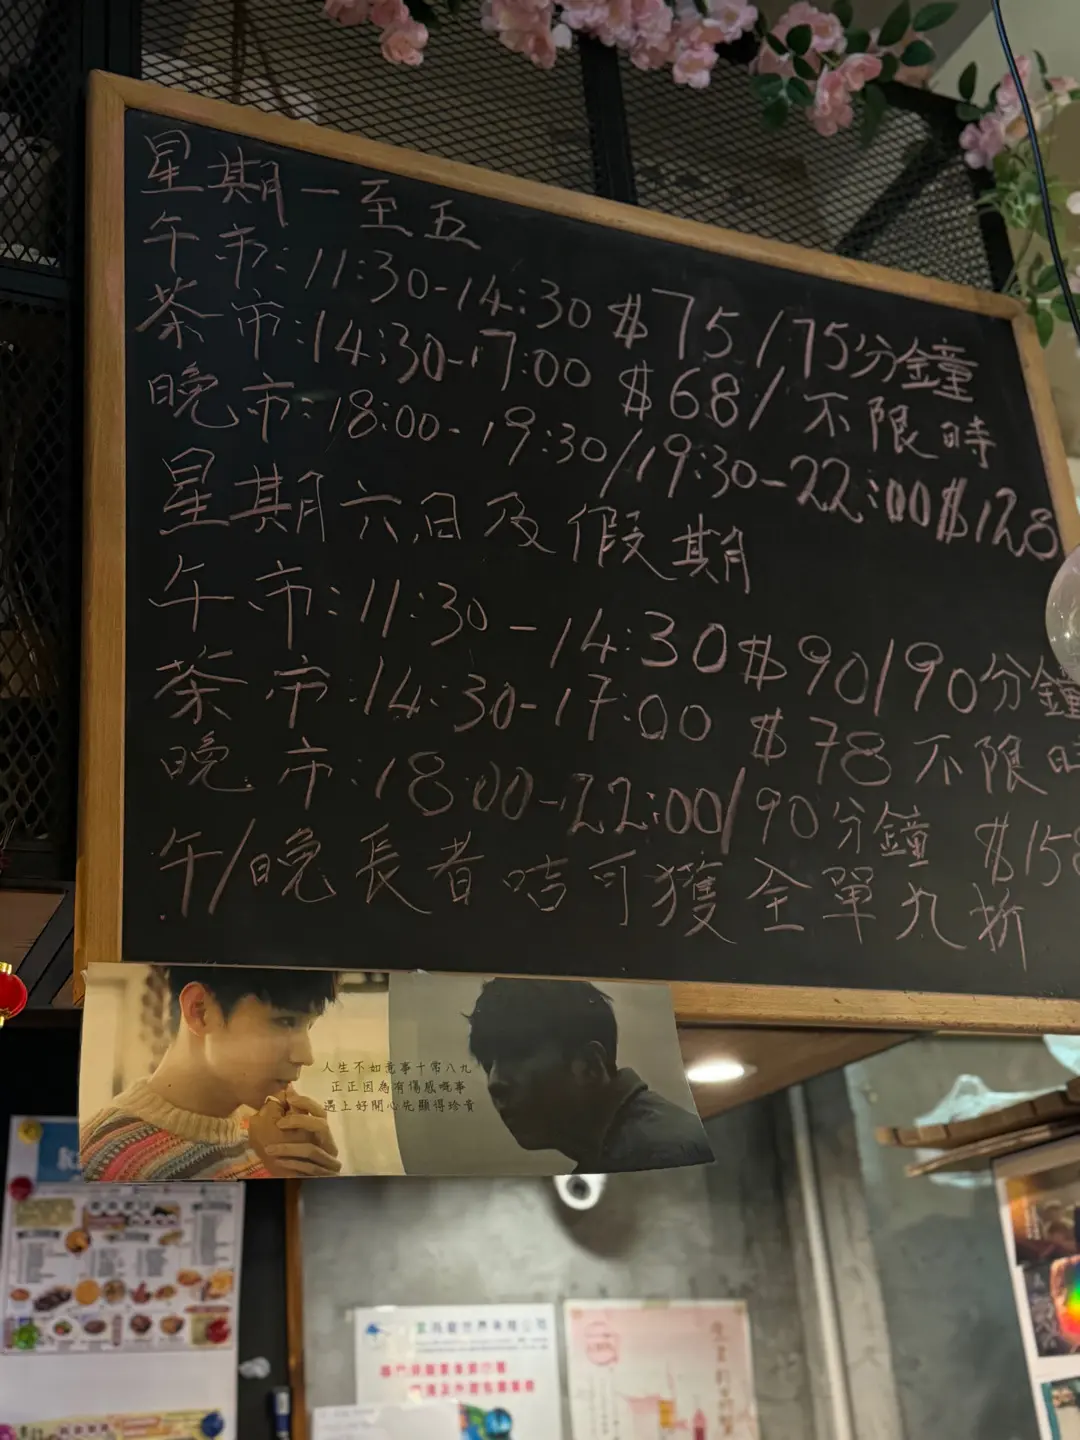 星期一至五
午市:11:30-14:30 $75/75分鐘
茶市:14:30-17:00 $68/不限時
晚市:18:00-19:30/19:30-22:00 $128
星期六,日及假期
午市:11:30-14:30 $90/90分鐘
茶市:14:30-17:00 $78 不限時
晚市:18:00-22:00/90分鐘 $158
午/晚長者咭可獲全單九折
人生不如意事十常八九
正正因為有傷感嘅事
遇上好開心先顯得珍貴